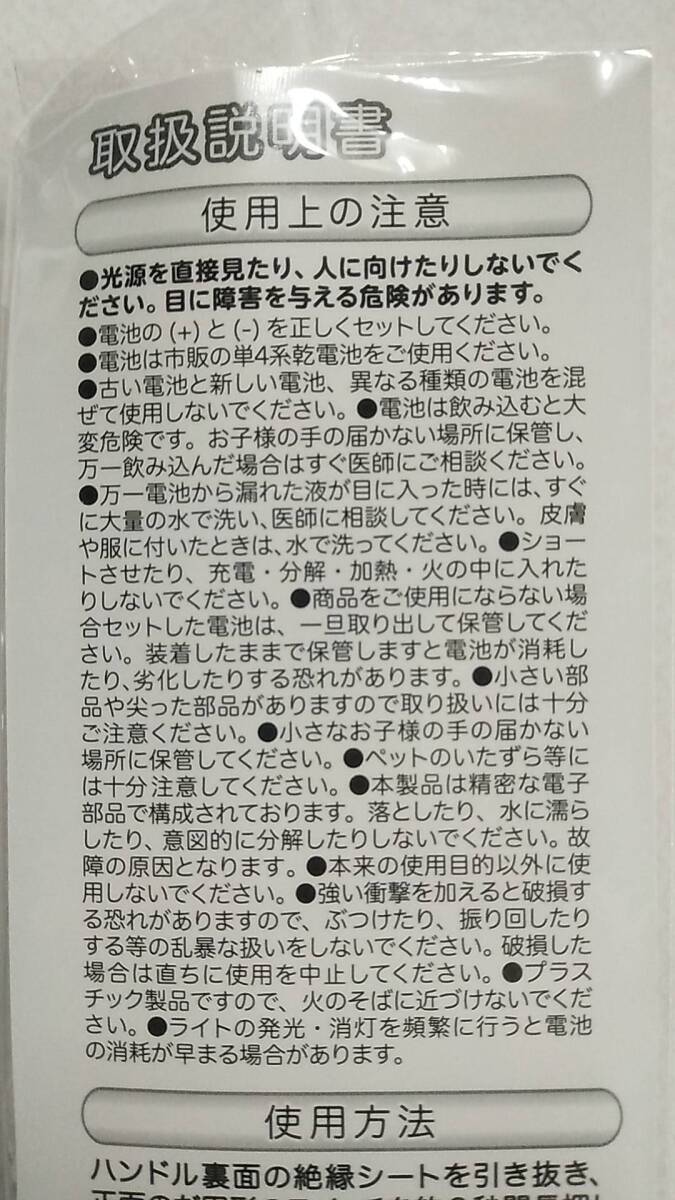 取扱説明書
使用上の注意
●光源を直接見たり、人に向けたりしないでく
ださい。目に障害を与える危険があります。
●電池の (+) と (-) を正しくセットしてください。
●電池は市販の単4系乾電池をご使用ください。
●古い電池と新しい電池、異なる種類の電池を混
ぜて使用しないでください。●電池は飲み込むと大
変危険です。お子様の手の届かない場所に保管し、
万一飲み込んだ場合はすぐ医師にご相談ください。
●万一電池から漏れた液が目に入った時には、すぐ
に大量の水で洗い、医師に相談してください。皮膚
や服に付いたときは、水で洗ってください。●ショー
トさせたり、充電・分解・加熱・火の中に入れた
りしないでください。●商品をご使用にならない場
合セットした電池は、一旦取り出して保管してくだ
さい。装着したままで保管しますと電池が消耗し
たり、劣化したりする恐れがあります。●小さい部
品や尖った部品がありますので取り扱いには十分
ご注意ください。●小さなお子様の手の届かない
場所に保管してください。●ペットのいたずら等に
は十分注意してください。●本製品は精密な電子
部品で構成されております。落としたり、水に濡ら
したり、意図的に分解したりしないでください。故
障の原因となります。●本来の使用目的以外に使
用しないでください。●強い衝撃を加えると破損す
る恐れがありますので、ぶつけたり、振り回したり
する等の乱暴な扱いをしないでください。破損した
場合は直ちに使用を中止してください。●プラス
チック製品ですので、火のそばに近づけないでくだ
さい。●ライトの発光・消灯を頻繁に行うと電池
の消耗が早まる場合があります。
使用方法
ハンドル裏面の絶縁シートを引き抜き、